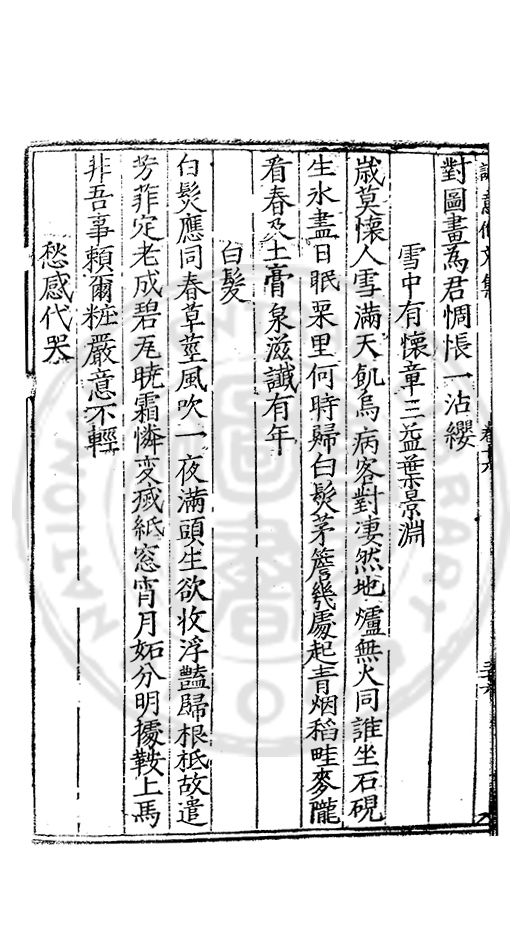 對圖畫為君惆悵一沾纓
雪中有懷章三益葉景淵
歲莫懷人雪滿天飢烏病客對凄然地爐無火同誰坐石硯
生氷盡日眠栗里何時歸白髮茅簷幾處起青烟稻畦麥隴
看春及土膏泉滋讖有年
白髮
白髮應同春草莖風吹一夜滿頭生欲收浮豔歸根柢故遣
芳菲定老成碧瓦曉霜憐変
紙窓宵月妬分明據鞍上馬
非吾事賴爾粧嚴意不輕
愁感代哭